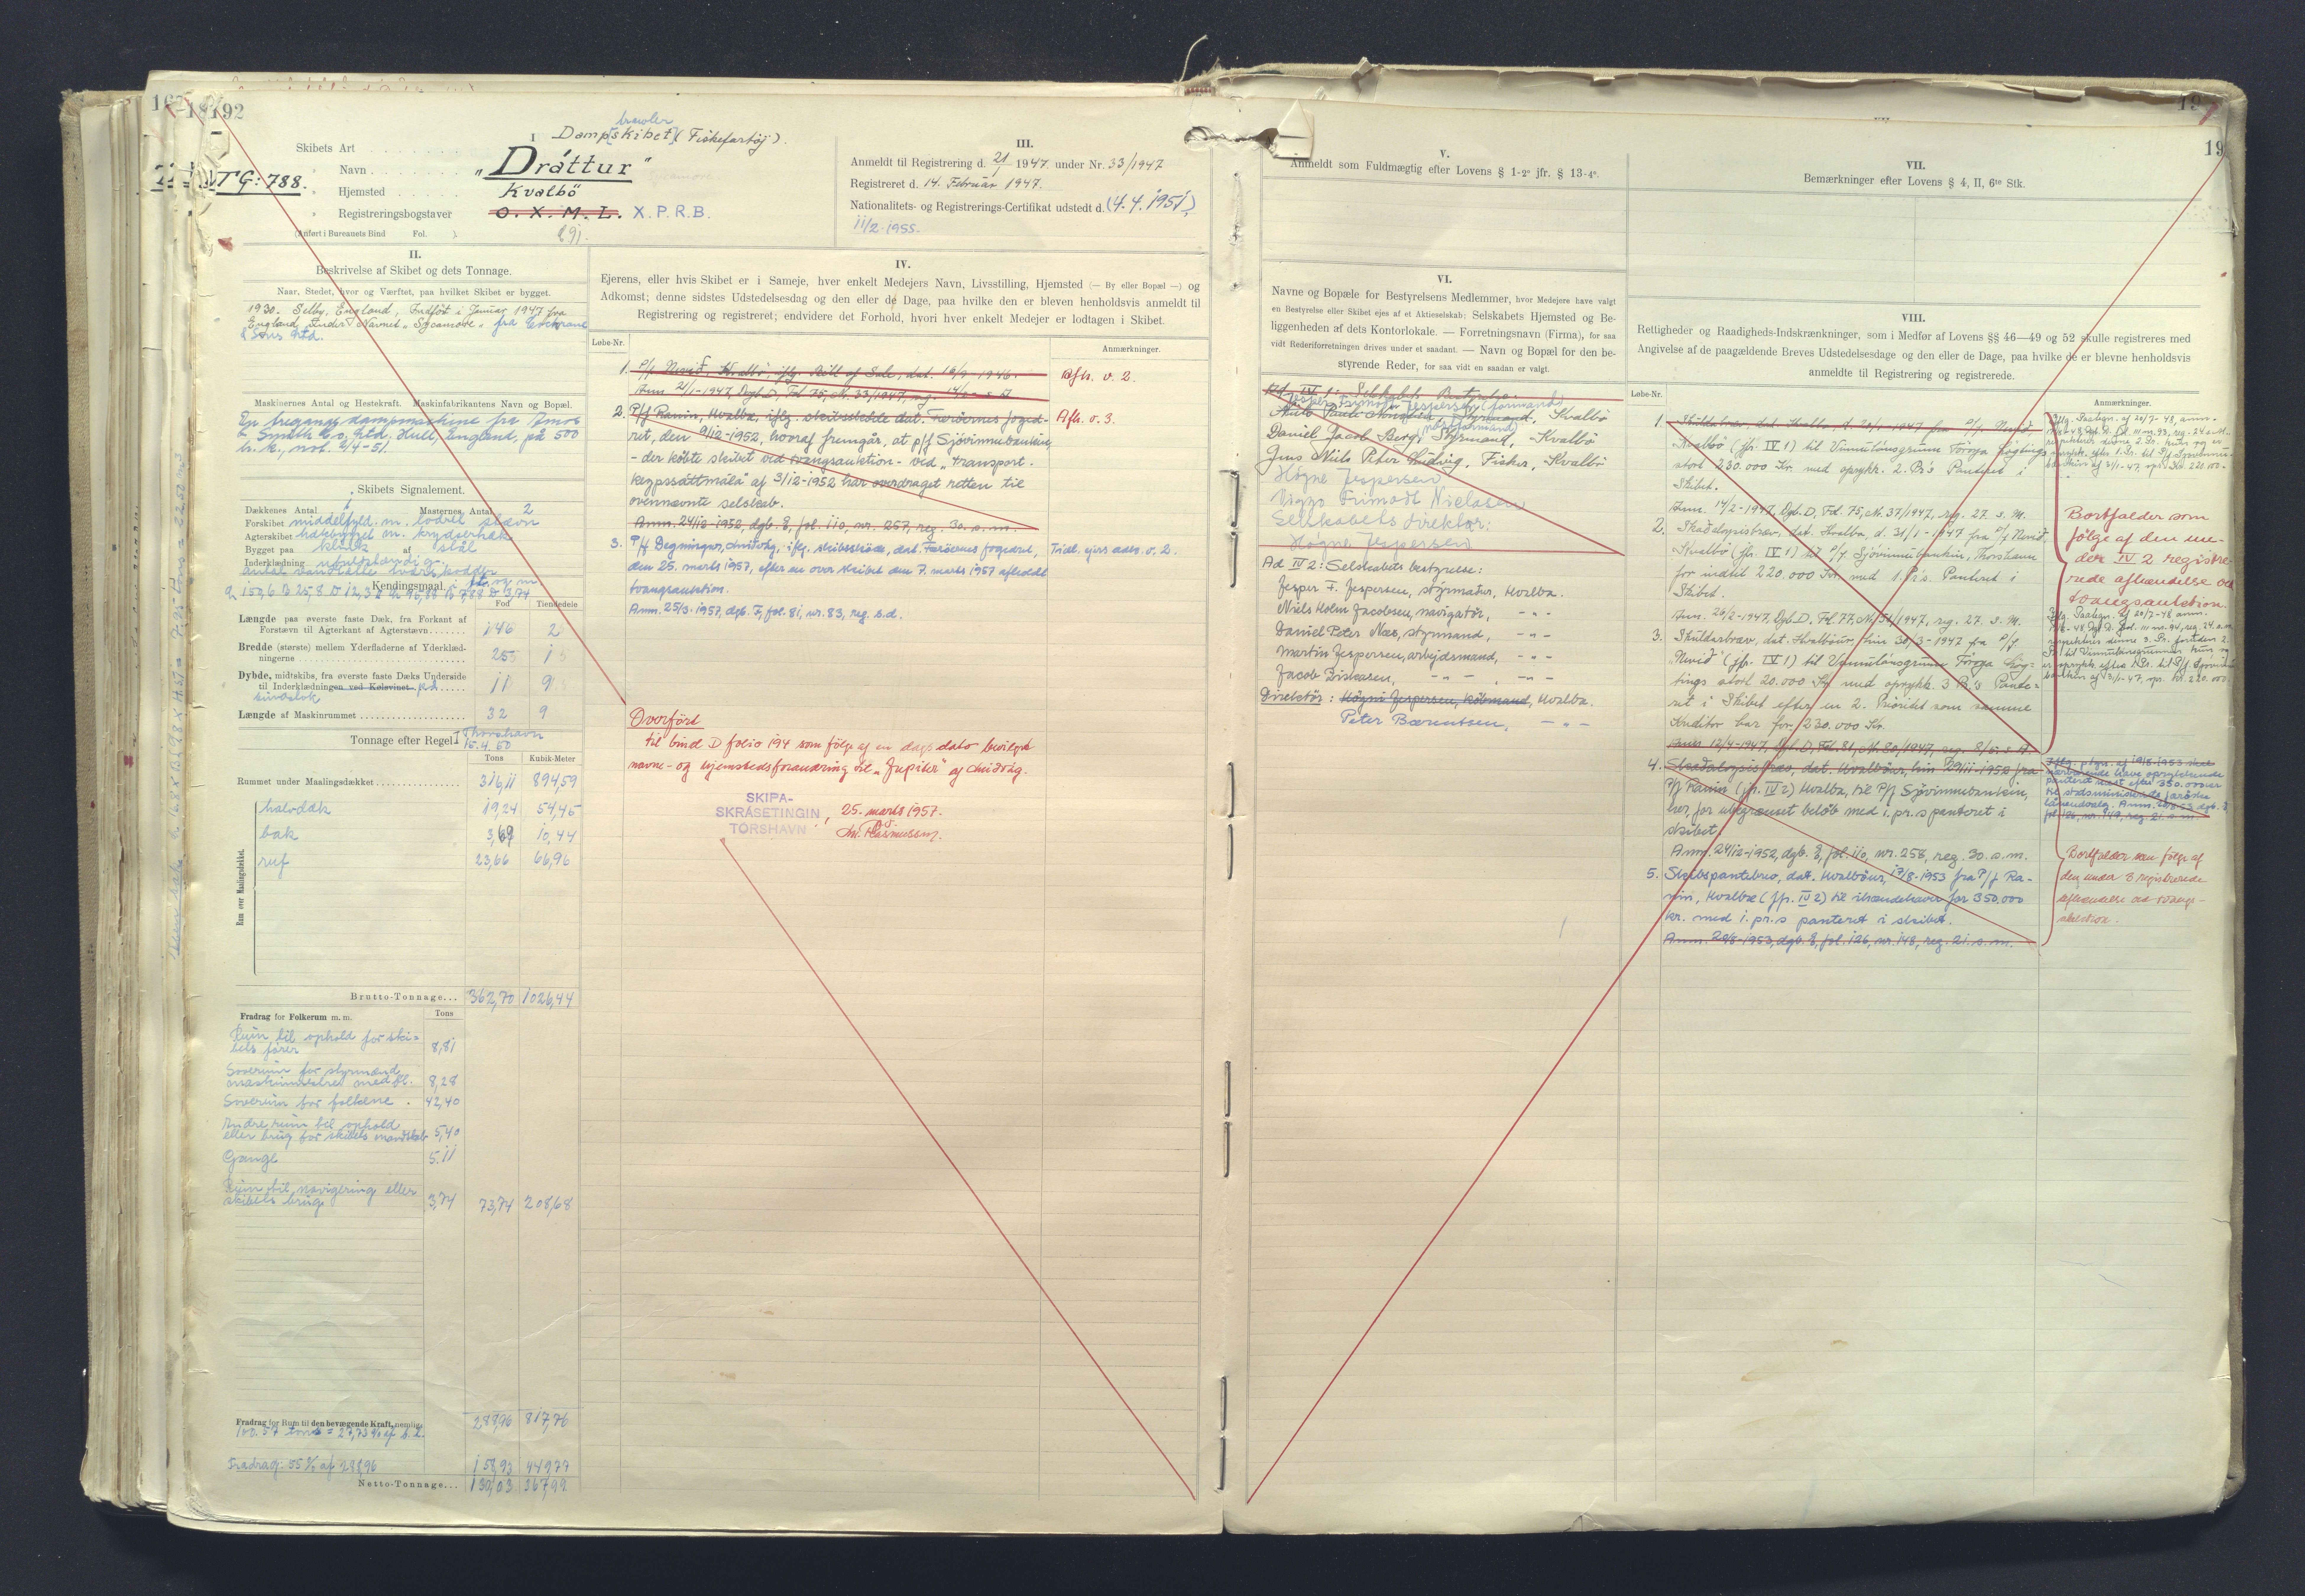 192
I
Skibets Art
trawler
Dampskibet (Fiskefartøj).
TG:788.
Navn
"Dráttur"
Sycamore
Hjemsted
Kvalbö
Registreringsbogstaver
O.X.M.L. X.P.R.B.
(Anført i Bureauets Bind Fol. ).
III.
Anmeldt til Registrering d. 21/1 1947 under Nr. 33/1947
Registreret d. 14. Februar 1947.
Nationalitets- og Registrerings-Certifikat udstedt d. (4.4.1951)
11/2 1955.
II.
Beskrivelse af Skibet og dets Tonnage.
Naar, Stedet, hvor og Værftet, paa hvilket Skibet er bygget.
1930. Selby, England, Indført i Januar 1947 fra
England under Navnet "Sycamore" fra Cochrane
& Sons Ltd.
Maskinernes Antal og Hestekraft. Maskinfabrikantens Navn og Bopæl.
En tregangs dampmaskine fra Amos
& Smith Co, Ltd, Hull, England, på 500
h.k., not. 2/4-51.
Skibets Signalement.
Dækkenes Antal 1 Masternes Antal 2
Forskibet middelfyld. m. lodret stævn
Agterskibet halvbygget m. krydserhæk
Bygget paa klink af stål
Inderklædning ufuldstændig
Antal vandtætte tværskodder
Kendingsmaal i ft. og m
Fod Tiendedele
Længde paa øverste faste Dæk, fra Forkant af
Forstævn til Agterkant af Agterstævn
146 2
Bredde (største) mellem Yderfladerne af Yderklæd-
ningerne
25 1
Dybde, midtskibs, fra øverste faste Dæks Underside
til Inderklædningen ved Kølsvinet
11 9
Længde af Maskinrummet
32 9
Tonnage efter Regel I Thorshavn
15.4.50
Tons Kubik-Meter
Rummet under Maalingsdækket
316,11 894,59
Rum over Maalingsdækket.
halvdæk 19,24 54,45
bak 3,69 10,44
ruf 23,66 66,96
Brutto-Tonnage... 362,70 1026,44
Fradrag for Folkerum m. m. Tons
Rum til ophold for ski-
bets fører 8,81
Soverum for styrmænd,
maskinmestre med fl. 8,28
Soverum for folkene . 42,40
Andre rum til ophold
eller brug for skibets mandskab 5,40
Gange 5.11
Rum til navigering eller
skibets brug 3,74 73,74 208,68
288,96 817,76
Fradrag for Rum til den bevægende Kraft, nemlig:
100.57 tons = 27,73 % af b.t.
Fradrag: 55 % af 288,96 158,93 449,77
Netto-Tonnage... 130,03 367,99
IV.
Ejerens, eller hvis Skibet er i Sameje, hver enkelt Medejers Navn, Livsstilling, Hjemsted (— By eller Bopæl —) og
Adkomst; denne sidstes Udstedelsesdag og den eller de Dage, paa hvilke den er bleven henholdsvis anmeldt til
Registrering og registreret; endvidere det Forhold, hvori hver enkelt Medejer er lodtagen i Skibet.
Løbe-Nr. Anmærkninger.
1. P/f Nevið, Kvalbö, iflg. Bill of Sale, dat. 1946. Afh. v. 2.
Anm. 21/1-1947, Dgb. D, Fol. 75, Nr. 33/1947, reg. 14/2 s. A.
2. P/f Ranin, Hvalba, iflg. skibsskøde dat. Færöernes foged- Afh. v. 3.
ret, den 9/12-1952, hvoraf fremgår, at p/f Sjóvinnubankin,
- der købte skibet ved tvangsauktion - ved "transport.
keypssáttmála" af 3/12-1952 har overdraget retten til
ovennævnte selskab.
Anm. 24/12-1952, dgb. E, fol. 110, nr. 257, reg. 30. s. m.
3. P/f Degningur, Miðvåg, iflg. skibsskøde, dat. Færöernes fogedret, Tidl. ejers adk. v. 2.
den 25. marts 1957, efter en over skibet den 7. marts 1957 afholdt
tvangsauktion.
Anm. 25/3-1957, dgb. F, fol. 81, nr. 83, reg. s.d.
Overført
til bind D folio 194 som følge af en dags dato bevilget
navne- og hjemstedsforandring til "Jupiter" af Miðvåg.
SKIPA-
SKRÁSETINGIN
TÓRSHAVN
, 25. marts 1957.
Rasmussen.
19
V.
Anmeldt som Fuldmægtig efter Lovens § 1-2° jfr. § 13-4°.
VI.
Navne og Bopæle for Bestyrelsens Medlemmer, hvor Medejere have valgt
en Bestyrelse eller Skibet ejes af et Aktieselskab; Selskabets Hjemsted og Be-
liggenheden af dets Kontorlokale. — Forretningsnavn (Firma), for saa
vidt Rederiforretningen drives under et saadant. — Navn og Bopæl for den be-
styrende Reder, for saa vidt en saadan er valgt.
Ad. IV 1. Selskabets Bestyrelse:
Jesper Frimodt Jespersen (formand)
Styrmand, Kvalbö
(næstformand)
Daniel Jacob Berg, Styrmand, - Kvalbö
Jens Niels Peter Ludvig, Fisker, Kvalbö
Högne Jespersen
Viggo Frimodt Nielsen
Selskabets direktør:
Högne Jespersen
Ad IV 2: Selskabets bestyrelse:
Jesper F. Jespersen, stýrmatur, Hvalba.
Niels Holm Jacobsen, navigatør, - " -
Daniel Peter Næs, styrmand, - " -
Martin Jespersen, arbejdsmand, - " -
Jacob Driskasen, - " - , - " -
Direktør: Högni Jespersen, købmand, Hvalba.
Peter Bærentsen, - " -
VII.
Bemærkninger efter Lovens § 4, II, 6te Stk.
VIII.
Rettigheder og Raadigheds-Indskrænkninger, som i Medfør af Lovens §§ 46—49 og 52 skulle registreres med
Angivelse af de paagældende Breves Udstedelsesdage og den eller de Dage, paa hvilke de er blevne henholdsvis
anmeldte til Registrering og registrerede.
Løbe-Nr. Anmærkninger.
1. Skuldarbræv, dat. Hvalba d. 1947 fra P/f Nevið,
Kvalbö (jfr. IV 1) til Vinnulánsgrunn Föroya Løgtings
stort 230.000 Kr. med oprykk. 2. Pr's Panteret i
Skibet.
Anm. 14/2-1947, Dgb. D, Fol. 75, Nr. 37/1947, reg. 27. s. M.
2. Skaðaloysisbræv, dat. Hvalba, d. 31/1-1947 fra P/f Nevið,
Kvalbö (jfr. IV 1) til P/f Sjóvinnubankin, Thorshavn
for indtil 220.000 Kr. med 1. Pr's. Panteret i
Skibet.
Anm. 26/2-1947, Dgb. D. Fol. 77, Nr. 51/1947, reg. 27. s. M.
3. Skuldarbræv, dat. Hvalbøur, hin 30/3-1947 fra P/f
"Nevið" (jfr. IV 1) til Vinnulánsgrunn Föroya Løg-
tings stort 20.000 Kr. med oprykk. 3 Pr.'s Pante-
ret i Skibet efter en 2. Prioritet som samme
Kreditor har for 230.000 Kr.
Anm. 12/4-1947, Dgb. D, Fol. 81, Nr. 80/1947, reg. 8/5. s. A.
4. Skaðaloysisbræv, dat. Hvalbøur, hin 29/11-1952 fra
P/f Ranin (jfr. IV 2) Hvalba, til P/f Sjóvinnubankin,
her, for ubegrænset beløb med 1. pr.s panteret i
skibet.
Anm. 24/12-1952, dgb. E, fol. 110, nr. 258, reg. 30. s. m.
5. Skibspantebrev, dat. Hvalbøur, 17/8-1953 fra P/f Ra-
nin, Hvalbø (jfr. IV 2) til ihændehaver for 350.000
kr. med 1. pr.s panteret i skibet.
Anm. 20/8-1953, dgb. E, fol. 126, nr. 148, reg. 21. s. m.
Bortfalder som
følge af den un-
der IV 2 registre-
rede afhændelse ved
tvangsauktion.
Iflg. påtgn. af 19/8-1953 skal
nærværende have oprykkende
panteret næst efter 350.000 kr
fol. 126, nr. 149, reg. 21. s. m.
Bortfalder som følge af
den under 3 registrerede
afhændelse ved tvangs-
auktion.